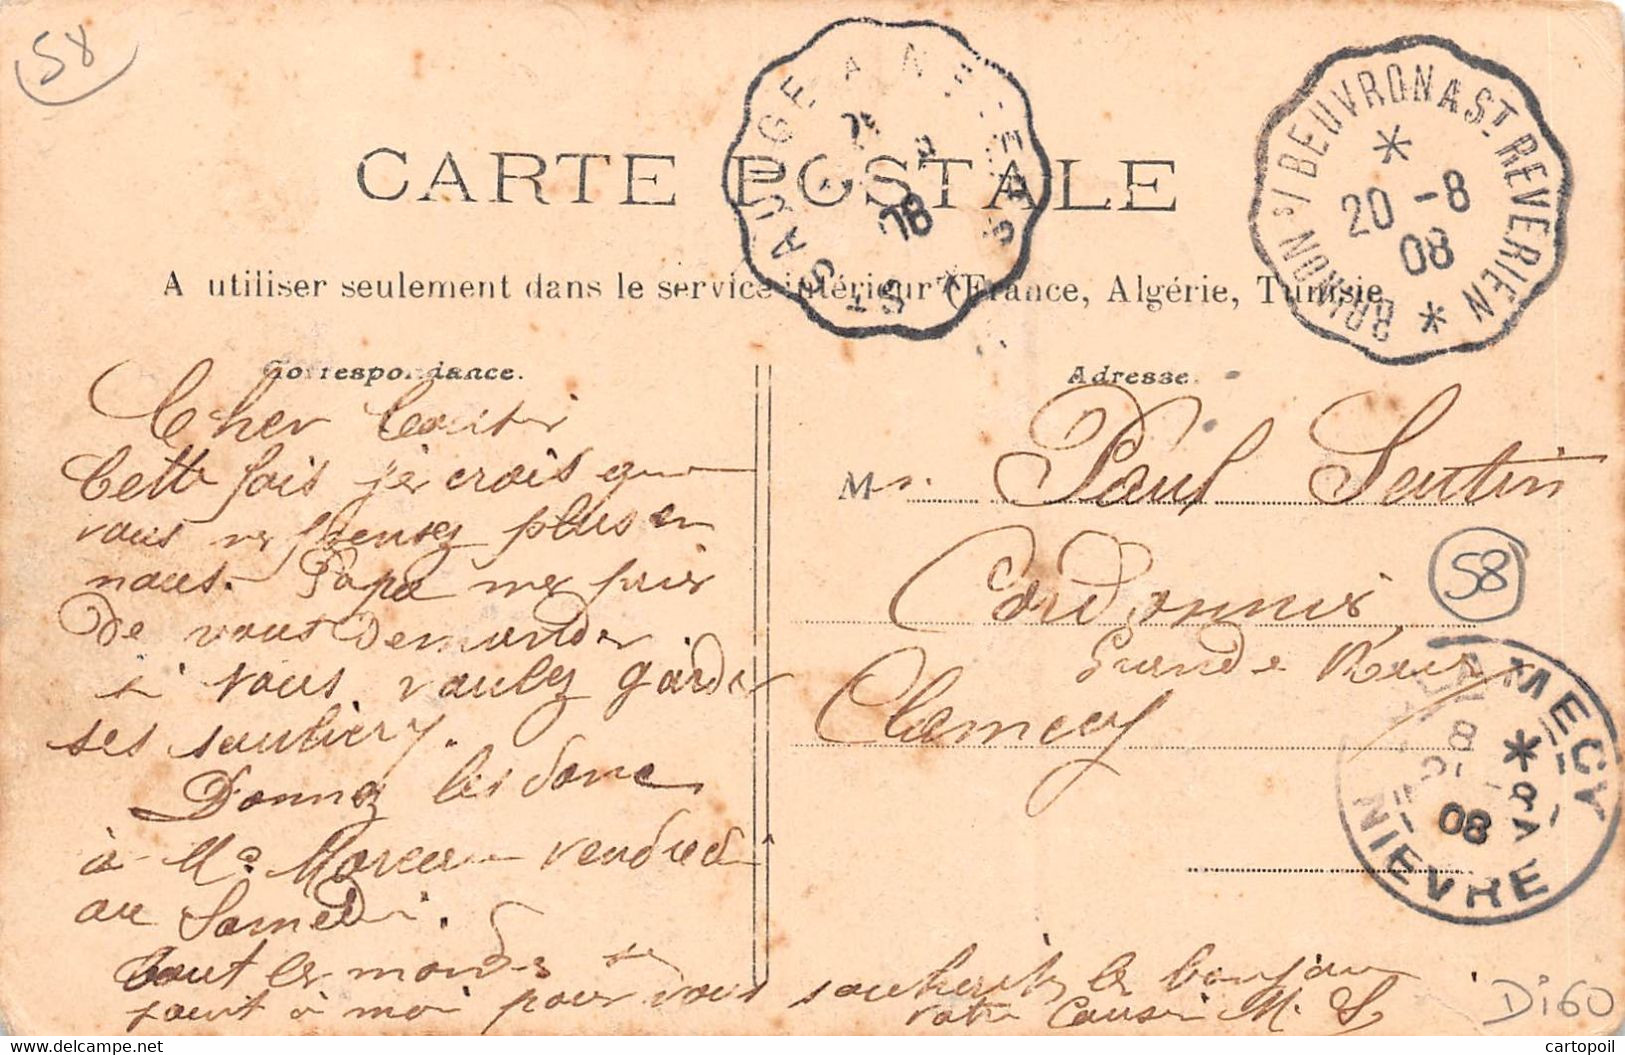 58
CARTE POSTALE
A utiliser seulement dans le service intérieur (France, Algérie, Tunisie
BRINON S/ BEUVRON A ST REVERIEN
20 -8
08
ST SAUGE A NE
08
Correspondance.
Adresse.
Cher Cousin
Cette fois je crois que
vous ne pensez plus en
nous. Papa me prie
de vous demander
si vous voulez garder
ses souliers.
Donnez les donc
à Mr Moreau vendredi
ou Samedi.
Tout le monde se
joint à moi pour vous souhaiter le bonjour
votre Cousin M. S.
Mr. Paul Sautin
Cordonnier
Grande Rue
Clamecy
58
CLAMECY
08
NIEVRE
Di60
cartopoil
www.delcampe.net